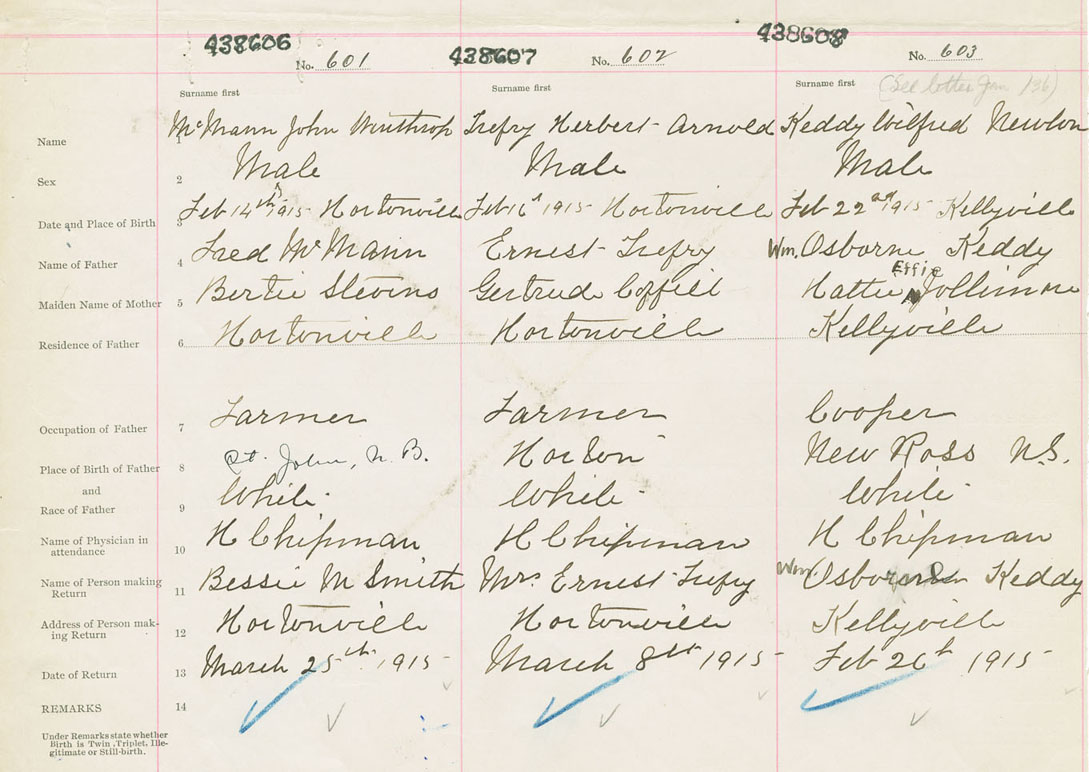 438606 438607 438608
No. 601 No. 602 No. 603
Surname first Surname first Surname first (See letter Jan /36)
Name 1 McMann John Winthrop Trefry Herbert Arnold Keddy Wilfred Newton
Sex 2 Male Male Male
Date and Place of Birth 3 Feb 14th 1915 Hortonville Feb 16th 1915 Hortonville Feb 22nd 1915 Kellyville
Name of Father 4 Fred McMann Ernest Trefry Wm. Osborne Keddy
Effie
Maiden Name of Mother 5 Bertie Stevens Gertrude Coffill Hattie Jollimore
Residence of Father 6 Hortonville Hortonville Kellyville
Occupation of Father 7 Farmer Farmer Cooper
Place of Birth of Father 8 St. John, N.B. Horton New Ross N.S.
and
Race of Father 9 White White White
Name of Physician in
attendance 10 H Chipman H Chipman H Chipman
Name of Person making
Return 11 Bessie M Smith Mrs. Ernest Trefry Wm. Osborne Keddy
Address of Person mak-
ing Return 12 Hortonville Hortonville Kellyville
Date of Return 13 March 25th 1915 March 8th 1915 Feb 26th 1915
REMARKS 14
Under Remarks state whether
Birth is Twin, Triplet, Ille-
gitimate or Still-birth.